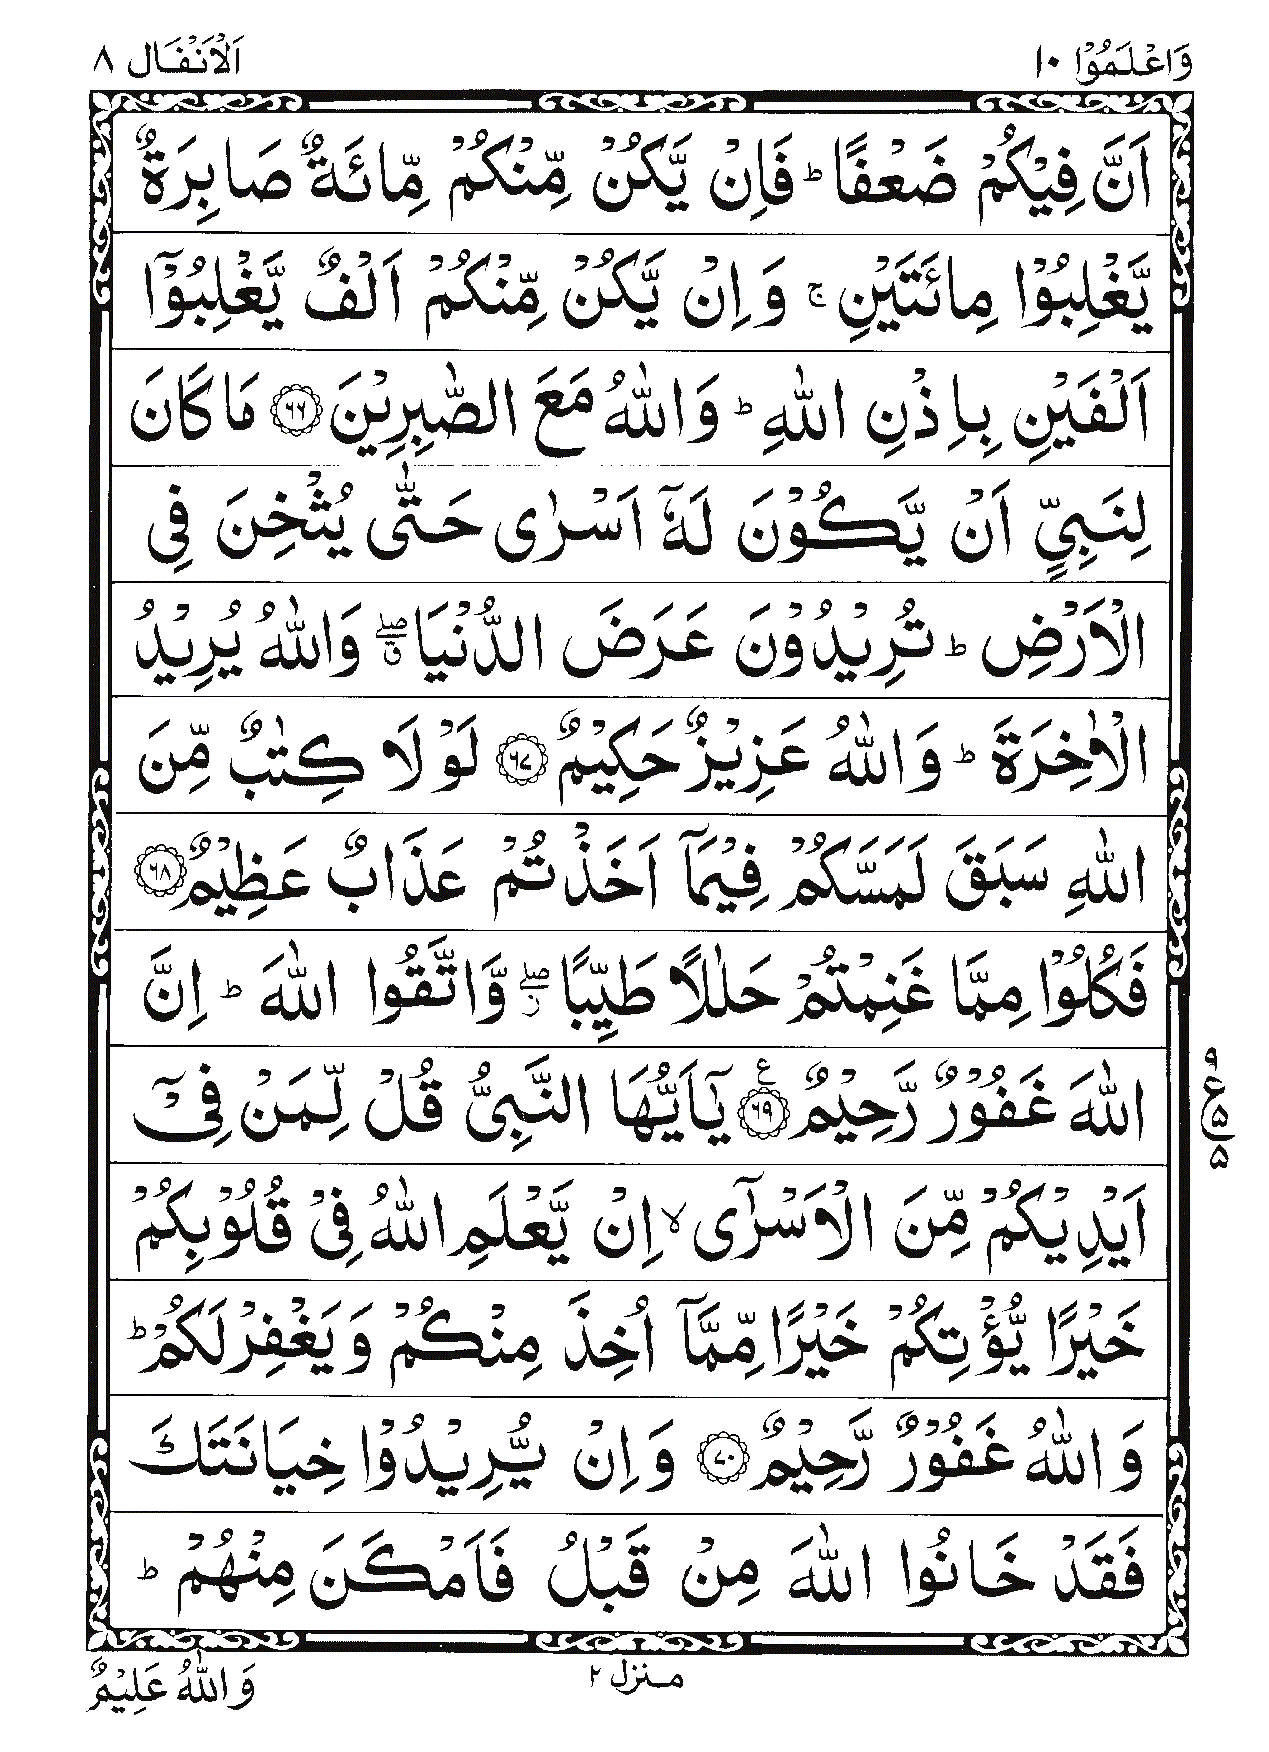 وَاعْلَمُوْٓا ١٠ اَلْاَنْفَال ٨
اَنَّ فِيْكُمْ ضَعْفًا ؕ فَاِنْ يَّكُنْ مِّنْكُمْ مِّائَةٌ صَابِرَةٌ
يَّغْلِبُوْا مِائَتَيْنِ ۚ وَاِنْ يَّكُنْ مِّنْكُمْ اَلْفٌ يَّغْلِبُوْٓا
اَلْفَيْنِ بِاِذْنِ اللّٰهِ ؕ وَاللّٰهُ مَعَ الصّٰبِرِيْنَ ۝٦٦ مَا كَانَ
لِنَبِيٍّ اَنْ يَّكُوْنَ لَهٗٓ اَسْرٰى حَتّٰى يُثْخِنَ فِى
الْاَرْضِ ؕ تُرِيْدُوْنَ عَرَضَ الدُّنْيَا ۖۗ وَاللّٰهُ يُرِيْدُ
الْاٰخِرَةَ ؕ وَاللّٰهُ عَزِيْزٌ حَكِيْمٌ ۝٦٧ لَوْلَا كِتٰبٌ مِّنَ
اللّٰهِ سَبَقَ لَمَسَّكُمْ فِيْمَآ اَخَذْتُمْ عَذَابٌ عَظِيْمٌ ۝٦٨
فَكُلُوْا مِمَّا غَنِمْتُمْ حَلٰلًا طَيِّبًا ۖز وَّاتَّقُوا اللّٰهَ ؕ اِنَّ
اللّٰهَ غَفُوْرٌ رَّحِيْمٌ ۝٦٩ ع يٰٓاَيُّهَا النَّبِىُّ قُلْ لِّمَنْ فِىْٓ
٩ ع ٥ ٥
اَيْدِيْكُمْ مِّنَ الْاَسْرٰٓى ۙ اِنْ يَّعْلَمِ اللّٰهُ فِىْ قُلُوْبِكُمْ
خَيْرًا يُّؤْتِكُمْ خَيْرًا مِّمَّآ اُخِذَ مِنْكُمْ وَيَغْفِرْ لَكُمْ ؕ
وَاللّٰهُ غَفُوْرٌ رَّحِيْمٌ ۝٧٠ وَاِنْ يُّرِيْدُوْا خِيَانَتَكَ
فَقَدْ خَانُوا اللّٰهَ مِنْ قَبْلُ فَاَمْكَنَ مِنْهُمْ ؕ
منزل ٢
وَاللّٰهُ عَلِيْمٌ